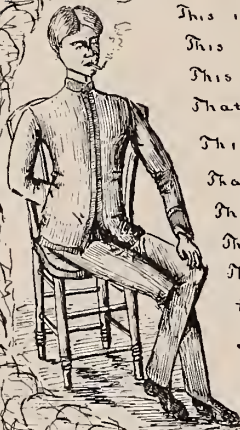 This i
This
This
That
Thi
Tha
Th
Th
T